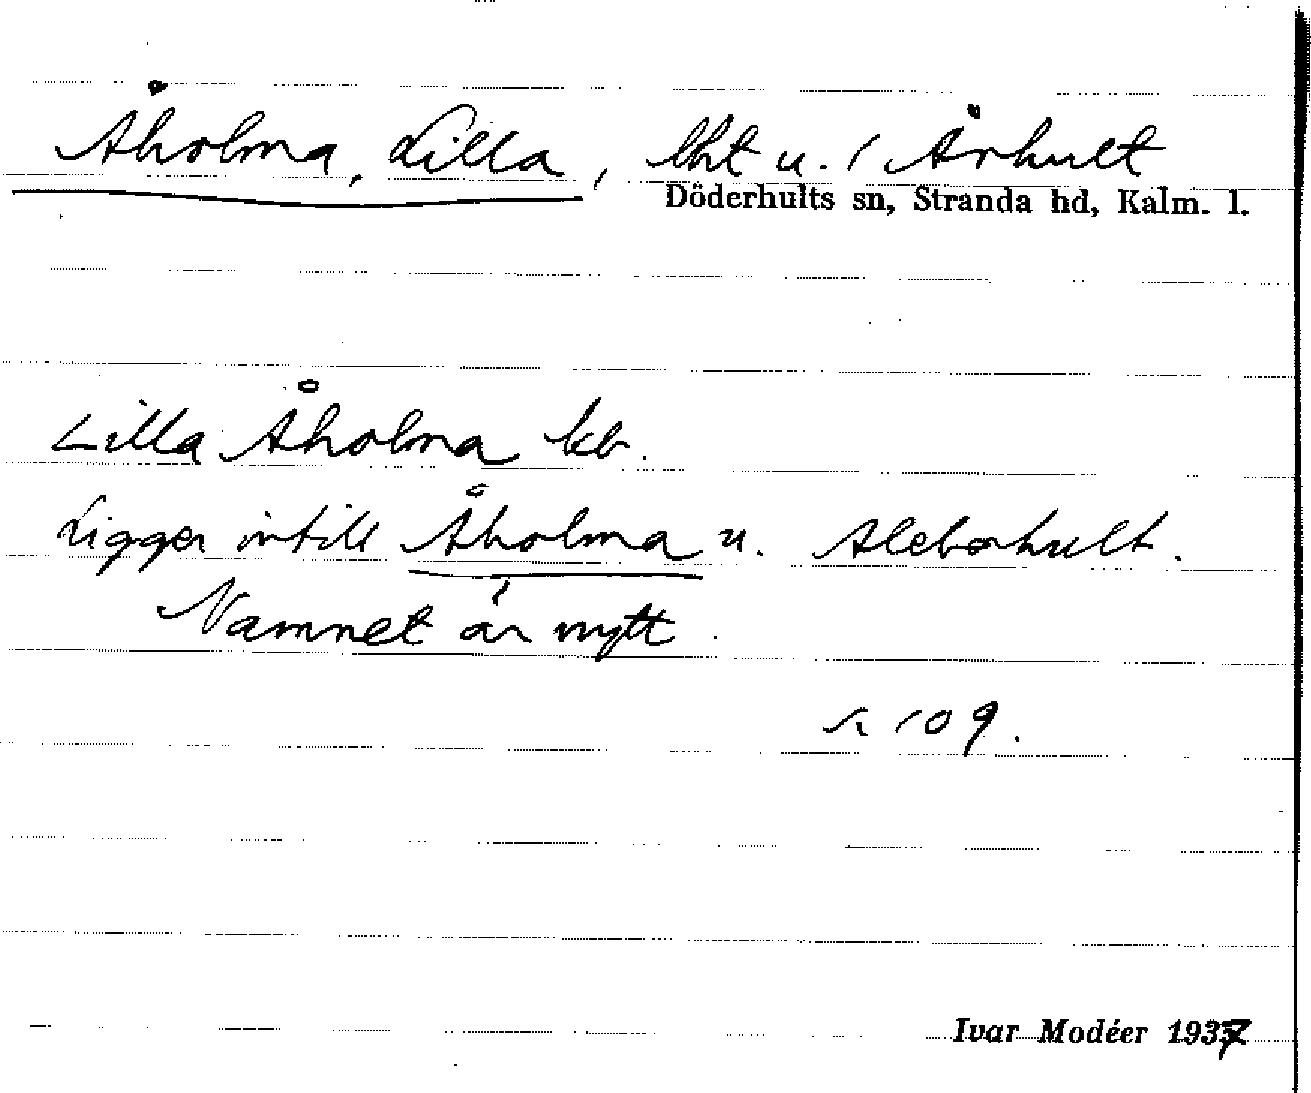 Åholma, Lilla, lht u. 1 Århult
Döderhults sn, Stranda hd, Kalm. l.
Lilla Åholma kb.
Ligger intill Åholma u. Alebohult.
Namnet är nytt.
s. 109.
Ivar Modéer 1937